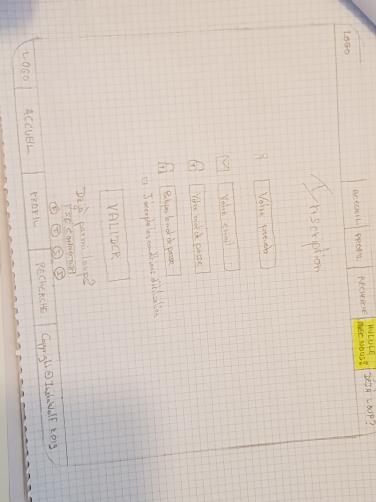 LOGO
ACCUEIL
PROFIL
RECHERCHE
HURLER
AVEC NOUS?
DÉJÀ LOUP?
Inscription
Votre pseudo
Votre email
Votre mot de passe
mot de passe
J'accepte les conditions d'utilisation
VALIDER
Déjà parmi loups?
Se connecter
LOGO
ACCUEIL
PROFIL
RECHERCHE
Copyright ©
2019